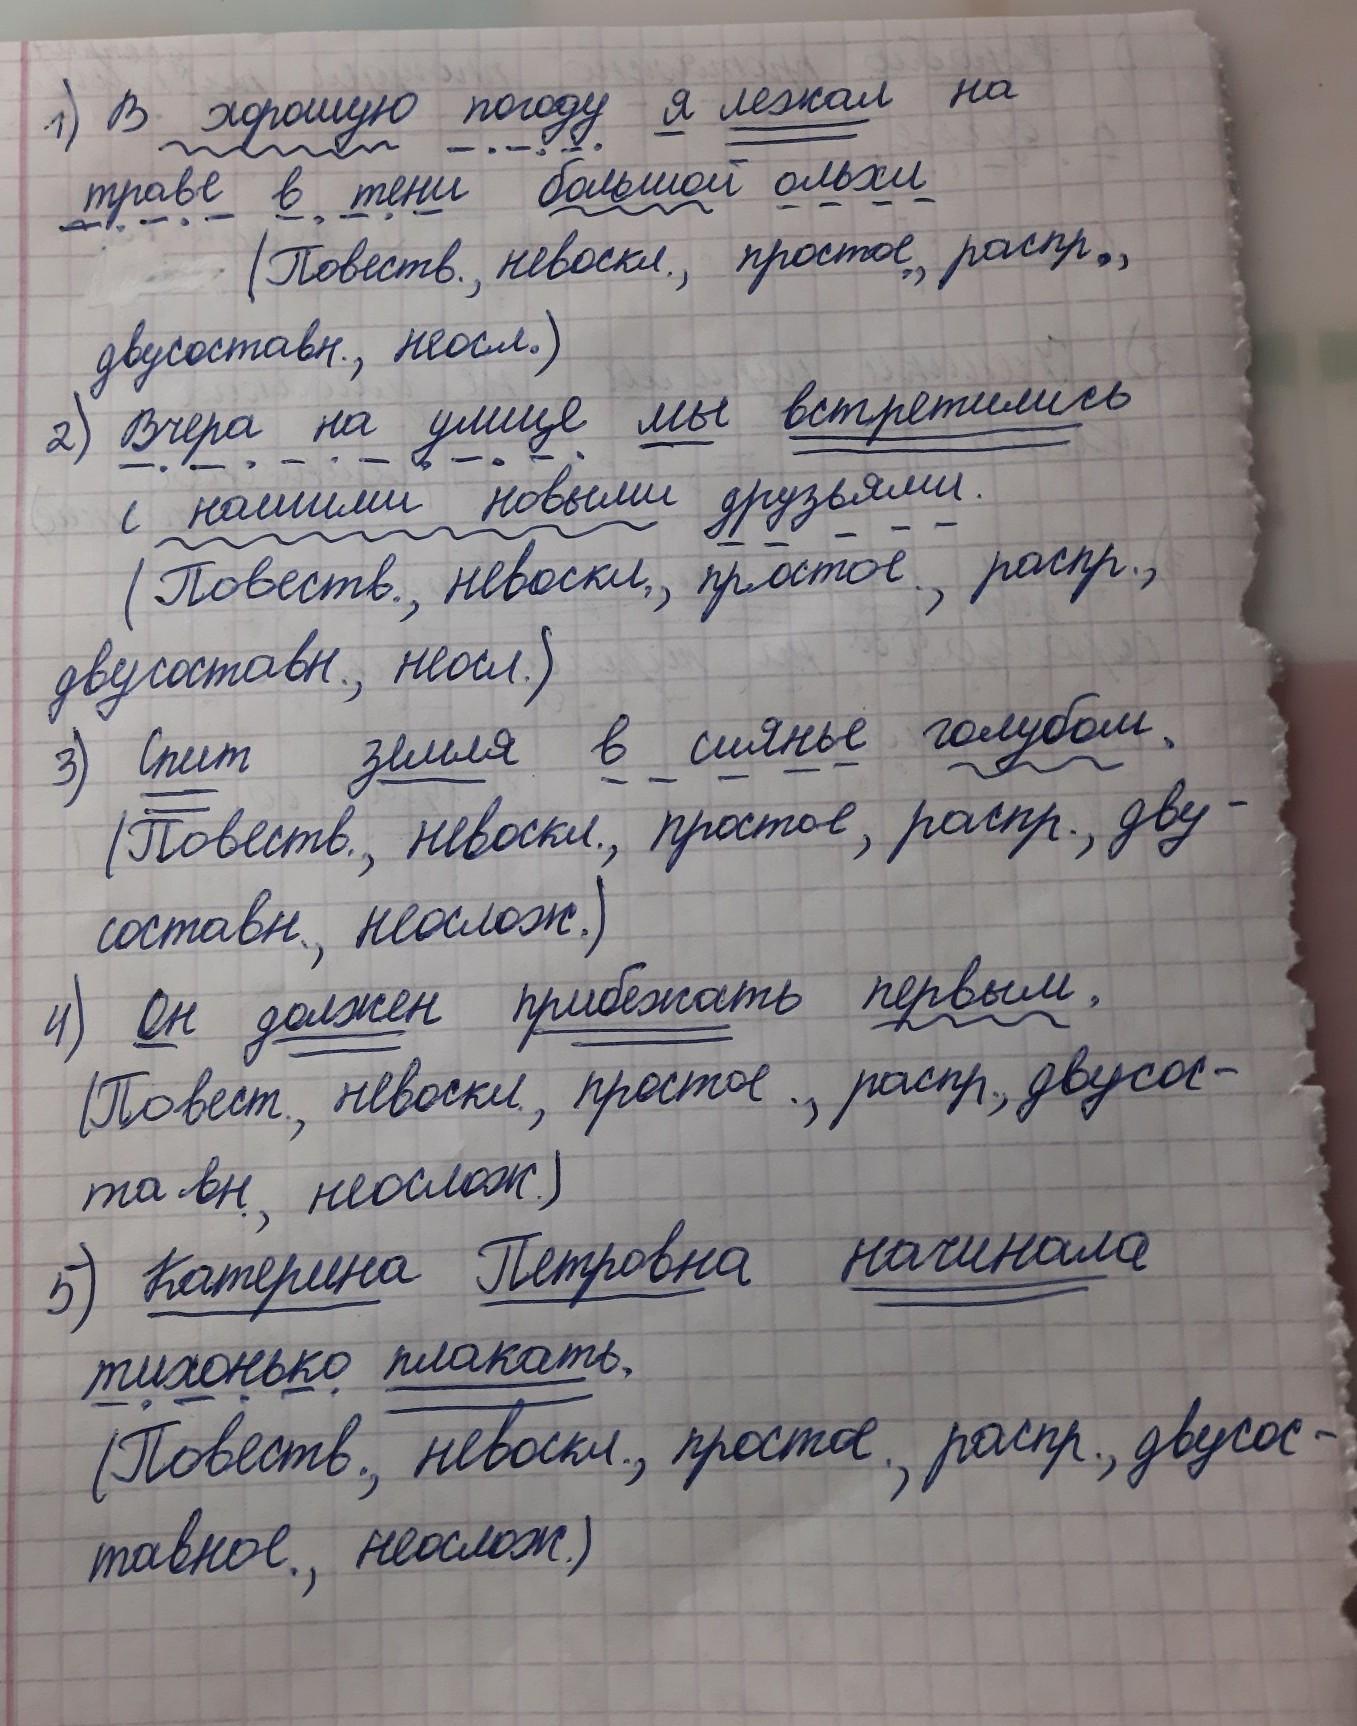 1) В хорошую погоду я лежал на
траве в тени большой ольхи
(Повеств., невоскл., простое., распр.,
двусоставн., неосл.)
2) Вчера на улице мы встретились
с нашими новыми друзьями.
(Повеств., невоскл., простое., распр.,
двусоставн., неосл.)
3) Спит земля в сиянье голубом.
(Повеств., невоскл., простое, распр., дву-
составн., неослож.)
4) Он должен прибежать первым.
(Повест., невоскл., простое., распр., двусос-
тавн., неослож.)
5) Катерина Петровна начинала
тихонько плакать.
(Повеств., невоскл., простое., распр., двусос-
тавное., неослож.)